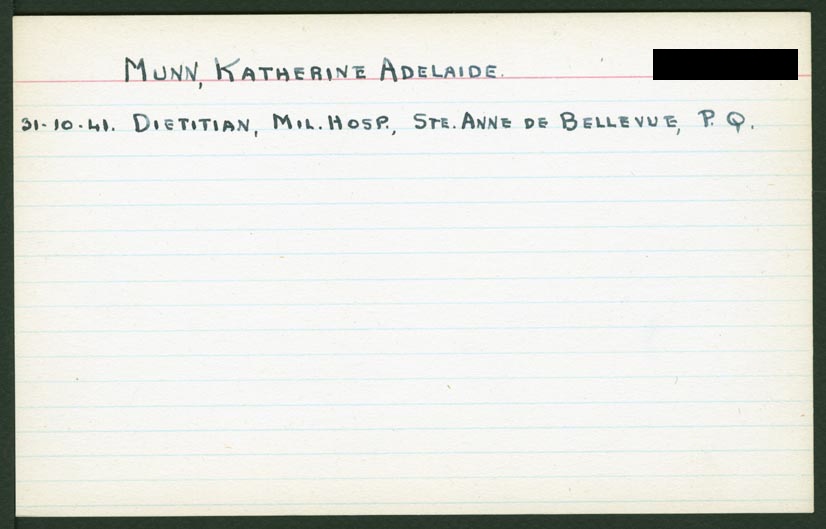 MUNN, KATHERINE ADELAIDE.
31-10-41. DIETITIAN, MIL. HOSP., STE. ANNE DE BELLEVUE, P. Q.